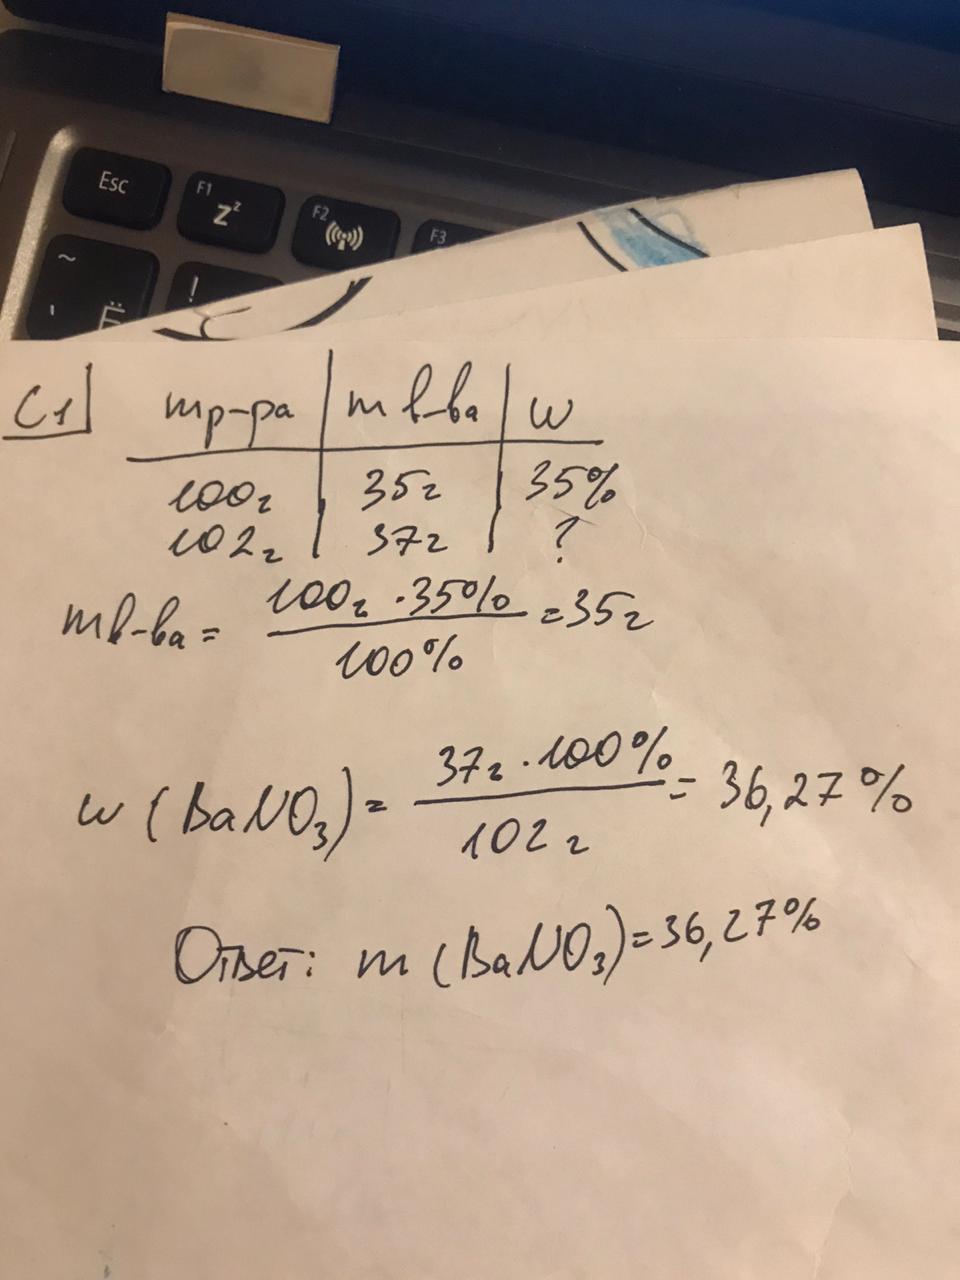 Esc
F1
Zz
F2
F3
~
!
Ё
C1
mр-ра | m в-ва | w
100г | 35г | 35%
102г | 37г | ?
mв-ва = 100г · 35% / 100% = 35г
w (BaNO₃) = 37г · 100% / 102г = 36,27%
Ответ: m (BaNO₃) = 36,27%